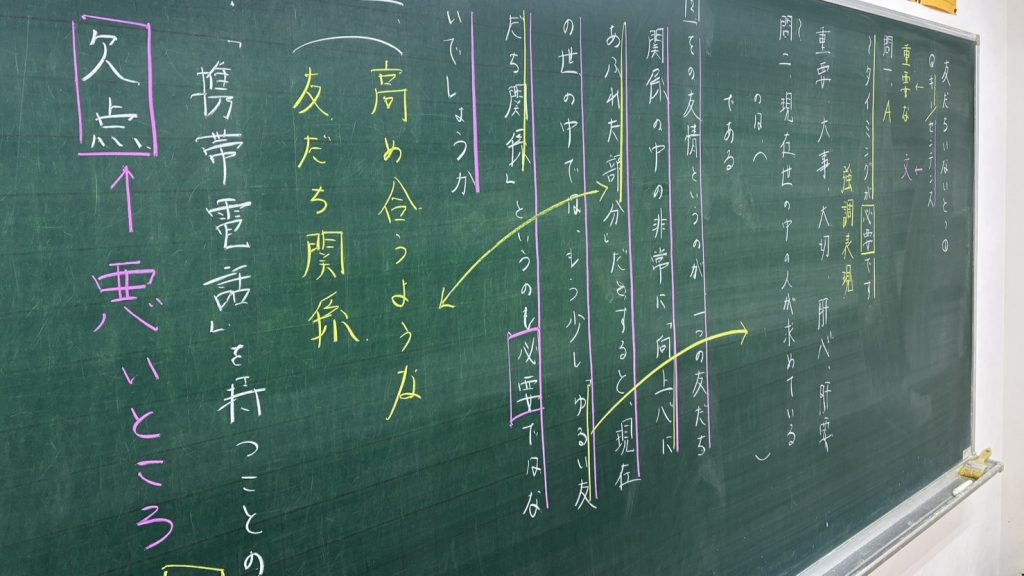 友だちいないとうの
センテンス
文
重要な
問一、A
タイミングが必要です
強調表現
重要、大事、大切、肝心、肝要
問二、現在世の中の人が求めている
のは(
)
である
図その友情というのが、一つの友だち
関係の中の非常に「向上心に
あふれた部分」だとすると、現在
の世の中では、もう少し「ゆるい友
だち関係」というのも必要ではな
いでしょうか
高め合うような
友だち関係
「携帯電話」を持つことの
欠点←悪いところ